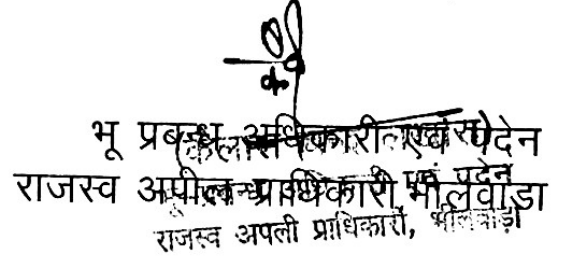 भू प्रबन्ध अधिकारी एवं पदेन
राजस्व अपील प्राधिकारी, भीलवाड़ा
एवं पदेन
राजस्व अपली प्राधिकारी, भीलवाड़ा